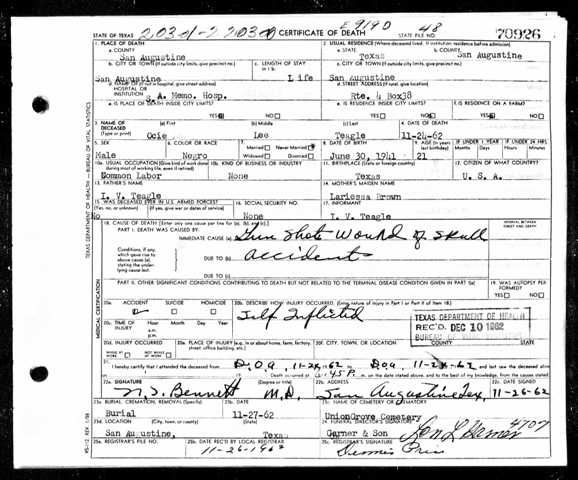 STATE OF TEXAS
CERTIFICATE OF DEATH
STATE FILE NO.
48
70926
1. PLACE OF DEATH
a. COUNTY
San Augustine
2. USUAL RESIDENCE (Where deceased lived. If institution: residence before admission)
a. STATE
Texas
b. COUNTY
San Augustine
b. CITY OR TOWN (If outside city limits, give precinct no.)
San Augustine
c. LENGTH OF STAY
in 1b.
Life
c. CITY OR TOWN (If outside city limits, give precinct no.)
San Augustine
d. NAME OF (If not in hospital, give street address)
HOSPITAL OR
INSTITUTION
S. A. Memo. Hosp.
Rte. 4 Box38
e. IS PLACE OF DEATH INSIDE CITY LIMITS?
YES NO
e. IS RESIDENCE INSIDE CITY LIMITS?
YES NO
f. IS RESIDENCE ON A FARM?
YES NO
3. NAME OF
DECEASED
(Type or print)
(a) First
Ocie
(b) Middle
Lee
(c) Last
Teagle
4. DATE OF DEATH
11-24-62
5. SEX
Male
6. COLOR OR RACE
Negro
7. Married Never Married
Widowed Divorced
8. DATE OF BIRTH
June 30, 1941
9. AGE (In years
last birthday)
21
IF UNDER 1 YEAR
Months Days
IF UNDER 24 HRS.
Hours Min.
10a. USUAL OCCUPATION (Give kind of work done
during most of working life, even if retired)
Common Labor
10b. KIND OF BUSINESS OR INDUSTRY
None
11. BIRTHPLACE (State or foreign country)
Texas
12. CITIZEN OF WHAT COUNTRY?
U. S. A.
13. FATHER'S NAME
I. V. Teagle
14. MOTHER'S MAIDEN NAME
Brown
15. WAS DECEASED EVER IN U.S. ARMED FORCES?
(Yes, no, or unknown) (If yes, give war or dates of service)
No
16. SOCIAL SECURITY NO.
None
17. INFORMANT
I. V. Teagle
18. CAUSE OF DEATH (Enter only one cause per line for (a), (b), and (c).)
PART I. DEATH WAS CAUSED BY:
IMMEDIATE CAUSE (a)
Gun Shot Wound of skull
INTERVAL BETWEEN
ONSET AND DEATH
Conditions, if any,
which gave rise to
above cause (a),
stating the under-
lying cause last.
DUE TO (b)
accident
DUE TO (c)
PART II. OTHER SIGNIFICANT CONDITIONS CONTRIBUTING TO DEATH BUT NOT RELATED TO THE TERMINAL DISEASE CONDITION GIVEN IN PART I(a)
19. WAS AUTOPSY PER-
FORMED?
YES NO
20a.
ACCIDENT SUICIDE HOMICIDE
20b. DESCRIBE HOW INJURY OCCURRED. (Enter nature of injury in Part I or Part II of Item 18).
Self Inflicted
20c. TIME OF
INJURY
Hour Month Day Year
a.m.
p.m.
TEXAS DEPARTMENT OF HEALTH
REC'D. DEC 10 1962
BUREAU OF VITAL STATISTICS
20d. INJURY OCCURRED
WHILE AT WORK
NOT WHILE AT WORK
20e. PLACE OF INJURY (e.g., in or about home, farm, factory,
street, office building, etc.)
20f. CITY, TOWN, OR LOCATION
COUNTY
STATE
21. I hereby certify that I attended the deceased from
DOA, 11-24-62
Doa, 11-24-62
Death occurred at
45P. m. on the date stated above, and to the best of my knowledge, from the causes stated.
22a. SIGNATURE
Bennett
(Degree or title)
M.D.
22b. ADDRESS
San Augustine Tex,
22c. DATE SIGNED
11-26-62
23a. BURIAL, CREMATION, REMOVAL (Specify)
Burial
23b. DATE
11-27-62
23c. NAME OF CEMETERY OR CREMATORY
UnionGrove Cemetery
23d. LOCATION (City, town, or county)
San Augustine,
(State)
Texas
24. FUNERAL DIRECTOR'S SIGNATURE
Garner & Son
4707
25a. REGISTRAR'S FILE NO.
25b. DATE REC'D BY LOCAL REGISTRAR
11-26-1962
25c. REGISTRAR'S SIGNATURE
TEXAS DEPARTMENT OF HEALTH — BUREAU OF VITAL STATISTICS
MEDICAL CERTIFICATION